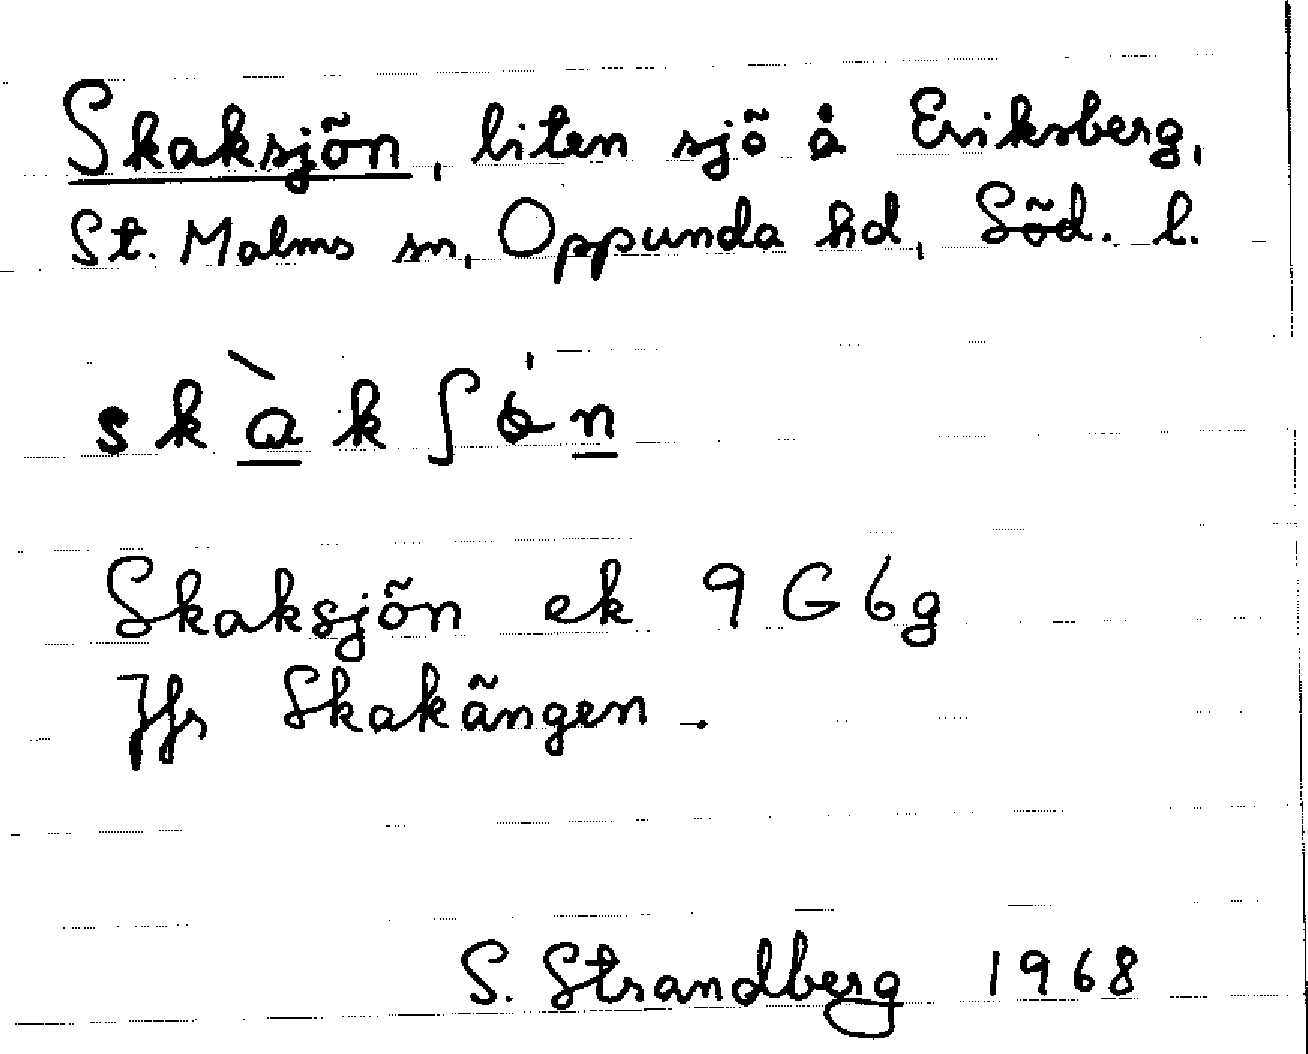 Skaksjön, liten sjö å Eriksberg,
St. Malms sn, Oppunda hd, Söd. l.
skàkʃön
Skaksjön ek 9G6g
Jfr Skakängen.
S. Strandberg 1968